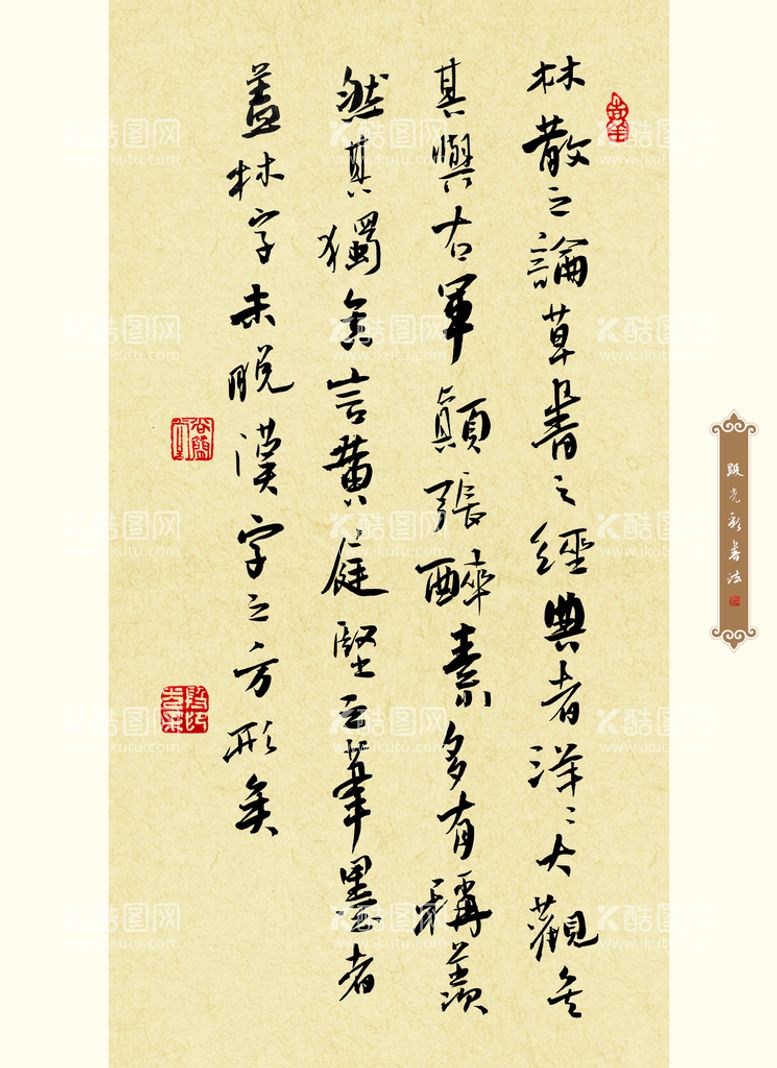 林散之論草書之經典者洋洋大觀矣
其與右軍顛張醉素多有稱羨
然其獨無言黃庭堅之筆墨者
蓋林字未脫漢字之方形矣
書法
酷图网
www.ikutu.com